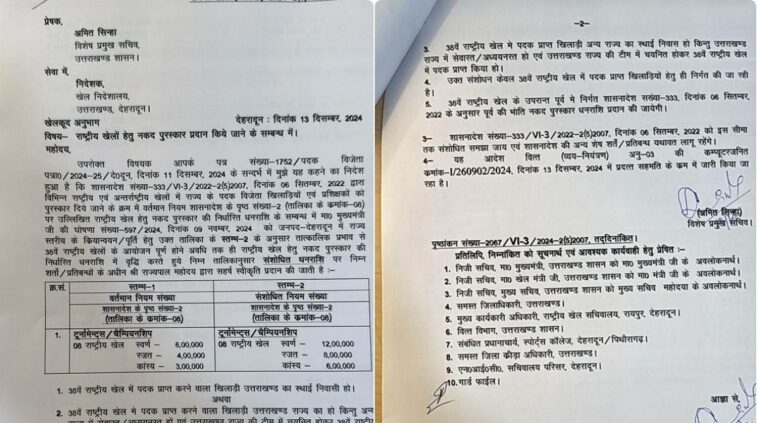 प्रेषक,
अमित सिन्हा
विशेष प्रमुख सचिव,
उत्तराखण्ड शासन।
सेवा में,
निदेशक,
खेल निदेशालय,
उत्तराखण्ड, देहरादून।
खेलकूद अनुभाग देहरादून: दिनांक 13 दिसम्बर, 2024
विषय– राष्ट्रीय खेलों हेतु नकद पुरस्कार प्रदान किये जाने के सम्बन्ध में।
महोदय,
उपरोक्त विषयक आपके पत्र संख्या–1752/पदक विजेता
पत्रा0/2024–25/दे0दून, दिनांक 11 दिसम्बर, 2024 के सन्दर्भ में मुझे यह कहने का निदेश
हुआ है कि शासनादेश संख्या–333/VI-3/2022–2(5)2007, दिनांक 06 सितम्बर, 2022 द्वारा
विभिन्न राष्ट्रीय एवं अन्तर्राष्ट्रीय खेलों में राज्य के पदक विजेता खिलाड़ियों एवं प्रशिक्षकों को
पुरस्कार दिये जाने के क्रम में वर्तमान नियम शासनादेश के पृष्ठ संख्या–2 (तालिका के कमांक–08)
पर उल्लिखित राष्ट्रीय खेल हेतु नकद पुरस्कार की निर्धारित धनराशि के सम्बन्ध में मा0 मुख्यमंत्री
जी की घोषणा संख्या–597/2024, दिनांक 09 नवम्बर, 2024 को जनपद–देहरादून में राज्य
स्तरीय के क्रियान्वयन/पूर्ति हेतु उक्त तालिका के स्तम्भ–2 के अनुसार तात्कालिक प्रभाव से
38वें राष्ट्रीय खेलों के आयोजन पूर्ण होने अवधि तक ही राष्ट्रीय खेल हेतु नकद पुरस्कार की
निर्धारित धनराशि में वृद्धि करते हुये निम्न तालिकानुसार संशोधित धनराशि पर निम्न
शर्तो/प्रतिबन्धों के अधीन श्री राज्यपाल महोदय द्वारा सहर्ष स्वीकृति प्रदान की जाती है :–
क्र.सं. स्तम्भ–1 स्तम्भ–2
वर्तमान नियम संख्या संशोधित नियम संख्या
शासनादेश के पृष्ठ संख्या–2 शासनादेश के पृष्ठ संख्या–2
(तालिका के कमांक–08) (तालिका के कमांक–08)
1. टूर्नामेन्ट्स/चैम्पियनशिप टूर्नामेन्ट्स/चैम्पियनशिप
08 राष्ट्रीय खेल स्वर्ण – 6,00,000 08 राष्ट्रीय खेल स्वर्ण – 12,00,000
रजत – 4,00,000 रजत – 8,00,000
कांस्य – 3,00,000 कांस्य – 6,00,000
1. 38वें राष्ट्रीय खेल में पदक प्राप्त करने वाला खिलाड़ी उत्तराखण्ड का स्थाई निवासी हो।
अथवा
2. 38वें राष्ट्रीय खेल मे पदक प्राप्त करने वाला खिलाड़ी उत्तराखण्ड राज्य का हो किन्तु अन्य
–2–
3. 38वें राष्ट्रीय खेल मे पदक प्राप्त खिलाड़ी अन्य राज्य का स्थाई निवास हो किन्तु उत्तराखण्ड
राज्य में सेवारत/अध्ययनरत हो एवं उत्तराखण्ड राज्य की टीम में चयनित होकर 38वें राष्ट्रीय खेल
में पदक प्राप्त किया हो।
4. उक्त संशोधन केवल 38वें राष्ट्रीय खेल में पदक प्राप्त खिलाड़ियों हेतु ही निर्गत की जा रही
है।
5. 38वें राष्ट्रीय खेल के उपरान्त पूर्व मे निर्गत शासनादेश संख्या–333, दिनांक 06 सितम्बर,
2022 के अनुसार पूर्व की भांति नकद पुरस्कार धनराशि प्रदान की जायेगी।
3– शासनादेश संख्या–333/VI-3/2022–2(5)2007, दिनांक 06 सितम्बर, 2022 को इस सीमा
तक संशोधित समझा जाय एवं शासनादेश की अन्य शेष शर्तें/प्रतिबन्ध यथावत लागू रहेंगे।
4– यह आदेश वित्त (व्यय–नियंत्रण) अनु–03 की कम्प्यूटरजनित
कमांक–I/260902/2024, दिनांक 13 दिसम्बर, 2024 में प्रदत्त सहमति के क्रम में जारी किया जा
रहा है।
(अमित सिन्हा)
विशेष प्रमुख सचिव।
पृष्ठांकन संख्या–2067/VI-3/2024–2(5)2007, तद्दिनांकित।
प्रतिलिपि, निम्नांकित को सूचनार्थ एवं आवश्यक कार्यवाही हेतु प्रेषित :–
1. निजी सचिव, मा0 मुख्यमंत्री, उत्तराखण्ड शासन को मा0 मुख्यमंत्री जी के अवलोकनार्थ।
2. निजी सचिव, मा0 खेल मंत्री जी, उत्तराखण्ड शासन को मा0 मंत्री जी के अवलोकनार्थ।
3. निजी सचिव, मुख्य सचिव, उत्तराखण्ड शासन को मुख्य सचिव महोदया के अवलोकनार्थ।
4. समस्त जिलाधिकारी, उत्तराखण्ड।
5. मुख्य कार्यकारी अधिकारी, राष्ट्रीय खेल सचिवालय, रायपुर, देहरादून।
6. वित्त विभाग, उत्तराखण्ड शासन।
7. संबंधित प्रधानाचार्य, स्पोर्ट्स कॉलेज, देहरादून/पिथौरागढ़।
8. समस्त जिला क्रीड़ा अधिकारी, उत्तराखण्ड।
9. एन0आई0सी0, सचिवालय परिसर, देहरादून।
10. गार्ड फाईल।
आज्ञा से,